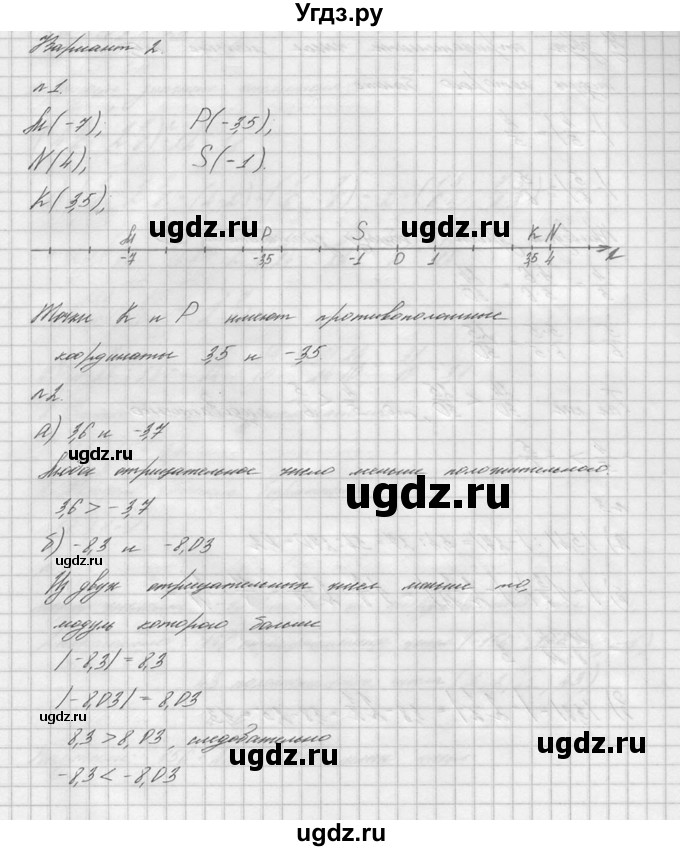 Угдз.ру
Вариант 2.
n1.
M(-7); P(-3,5);
N(4); S(-1).
K(3,5);
ugdz.ru ugdz.ru
M P S K N
-7 -3,5 -1 0 1 3,5 4 x
ugdz.ru
Точки K и P имеют противоположные
координаты 3,5 и -3,5
n2.
а) 3,6 и -3,7
ugdz.ru
Любое отрицательное число меньше положительного.
ugdz.ru
3,6 > -3,7
б) -8,3 и -8,03
ugdz.ru
Из двух отрицательных чисел меньше то,
модуль которого больше
|-8,3| = 8,3
|-8,03| = 8,03
ugdz.ru
8,3 > 8,03, следовательно
ugdz.ru ugdz.ru
-8,3 < -8,03
ugdz.ru